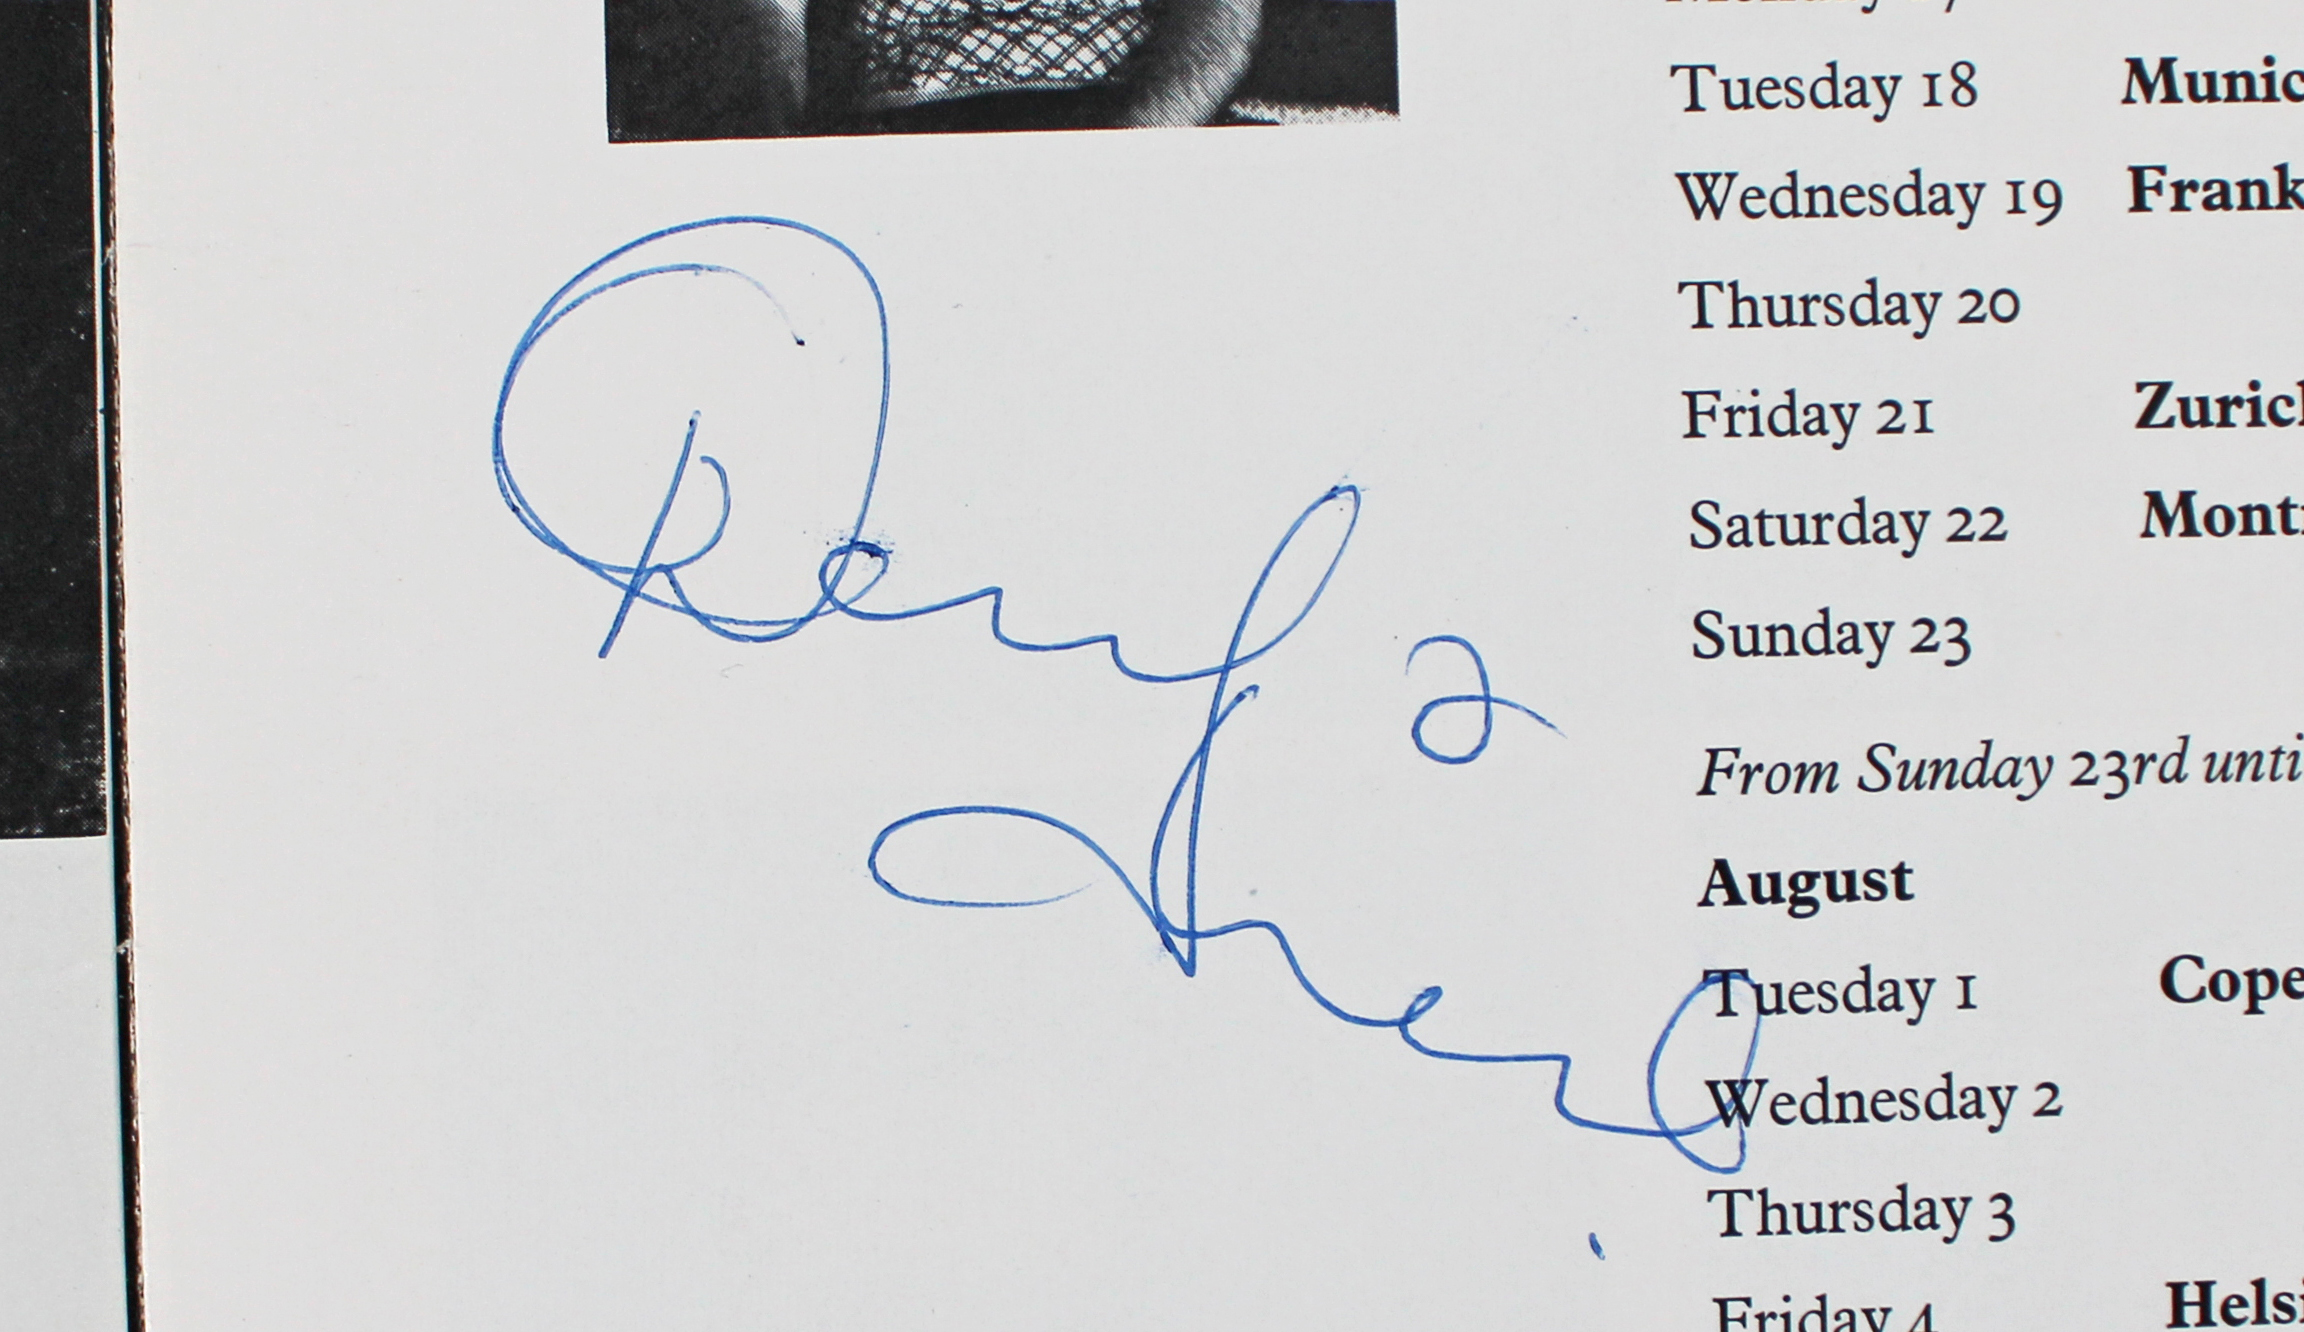 Tuesday 18 Munic
Wednesday 19 Frank
Thursday 20
Friday 21 Zuric
Saturday 22 Mont
Sunday 23
From Sunday 23rd unti
August
Tuesday 1 Cope
Wednesday 2
Thursday 3
Friday 4 Helsi